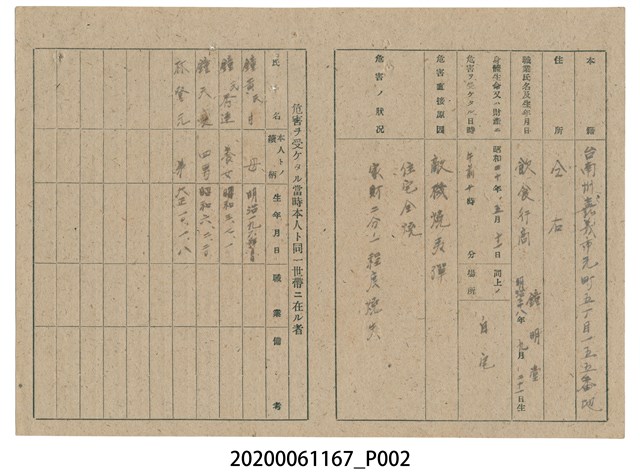 本籍 台南州嘉義市元町五丁目一五五番地
住所 仝右
職業氏名及生年月日 飲食行商 鍾明堂 明治 八年 九月 二十一日生
身體生命又ハ財產ニ危害ヲ受ケタル日時 昭和 二十年 五月 十二日 午前十時 分 同上ノ場所 自宅
危害直接原因 敵機燒夷彈
危害ノ狀況 住宅全燒
家財二分ノ一程度燒失
危害ヲ受ケタル當時本人ト同一世帶ニ在ル者
氏名 本人トノ續柄 生年月日 職業 備考
鍾黃氏 母 明治
鍾氏 養女 昭和
鍾天 四男 昭和六、
孫 弟 大正
20200061167_P002